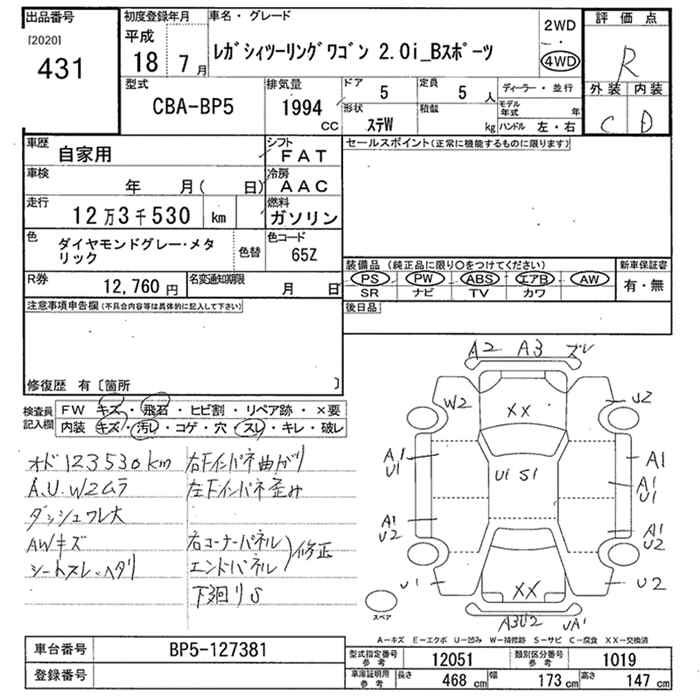 出品番号
[2020]
431
初度登録年月
平成
18 7 月
車名・グレード
レガシィツーリングワゴン 2.0i_Bスポーツ
2WD
4WD
評価点
R
外装 内装
C D
型式
CBA-BP5
排気量
1994
cc
ドア
5
形状
ステW
定員
5 人
積載
kg
ディーラー・並行
モデル年式 年
ハンドル 左・右
車歴
自家用
シフト
FAT
車検
年 月( 日)
冷房
AAC
走行
12万3千530 km
燃料
ガソリン
色
ダイヤモンドグレー・メタリック
色替
色コード
65Z
R券
12,760 円
名変通知期限
月 日
セールスポイント(正常に機能するものに限ります)
装備品 (純正品に限り○をつけてください)
PS PW ABS エアB AW
SR ナビ TV カワ
新車保証書
有・無
後日品
注意事項申告欄(不具合内容等は具体的に記入して下さい)
修復歴 有〔箇所 〕
検査員記入欄
FW キズ・飛石・ヒビ割・リペア跡・×要
内装 キズ・汚レ・コゲ・穴・スレ・キレ・破レ
オド123530km
A.U.W2ムラ
ダッシュワレ大
AWキズ
シートスレ、ヘタリ
右Fインパネ曲ガリ
左Fインパネ歪み
右コーナーパネル
エンドパネル
)修正
下廻りS
A2 A3 ズレ
W2
XX
U2
A1
U1
U1 S1
A1
A1
U1
A1
U2
A1
U2
U1
XX
U2
A3U2 UA1
スペア
A－キズ E－エクボ U－凹み W－補修跡 S－サビ C－腐食 XX－交換済
車台番号
BP5-127381
登録番号
型式指定番号
参考
12051
類別区分番号
参考
1019
車庫証明用
参考
長さ
468 cm
幅
173 cm
高さ
147 cm